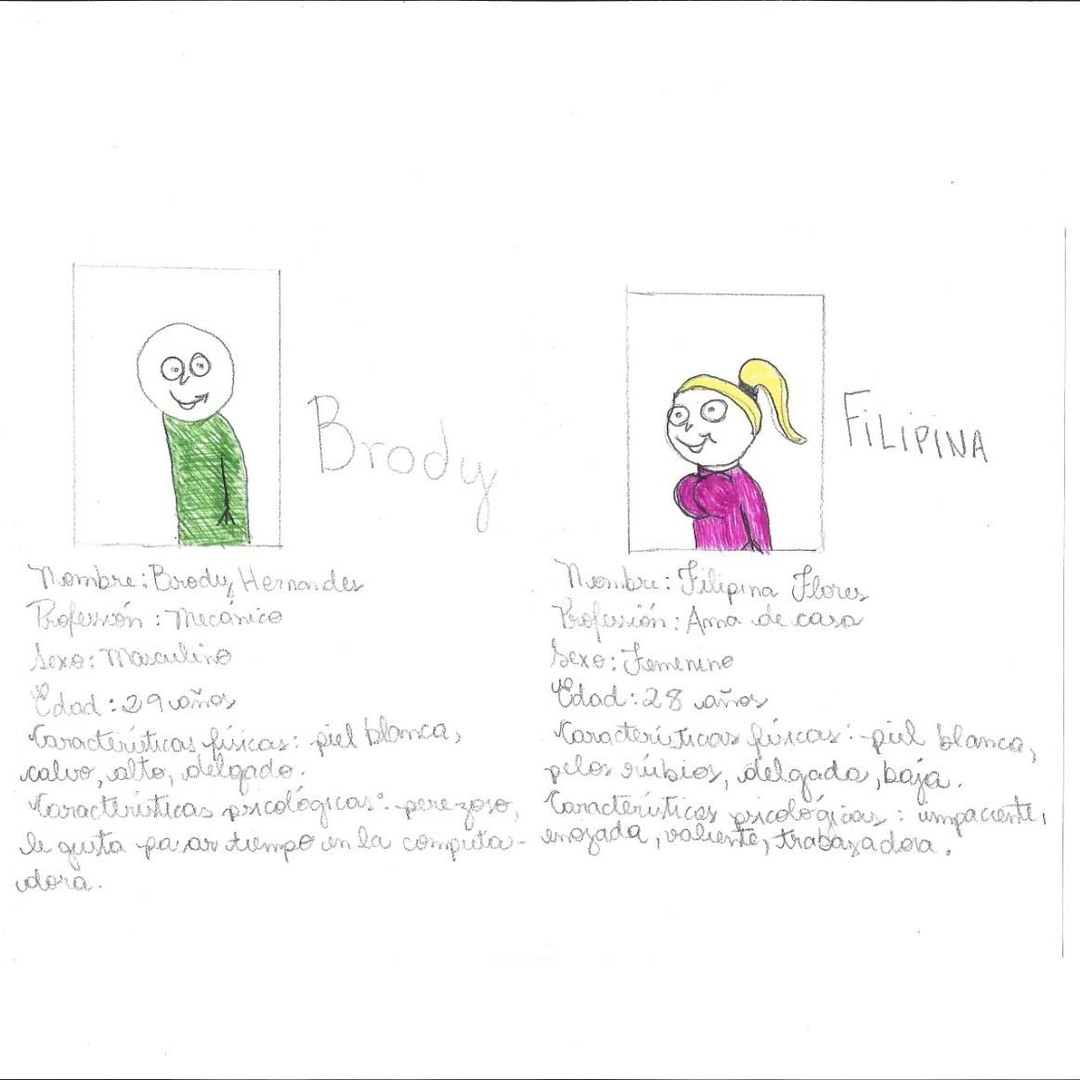 Brody
Nombre: Brody Hernandes
Profesión: Mecánico
Sexo: Masculino
Edad: 29 años
Características físicas: piel blanca,
calvo, alto, delgado.
Características psicológicas: perezoso,
le gusta pasar tiempo en la computa-
dora.
FiLiPiNA
Nombre: Filipina Flores
Profesión: Ama de casa
Sexo: Femenino
Edad: 28 años
Características físicas: piel blanca,
pelos rúbios, delgada, baja.
Características psicológicas: impaciente,
enozada, valiente, trabazadora.